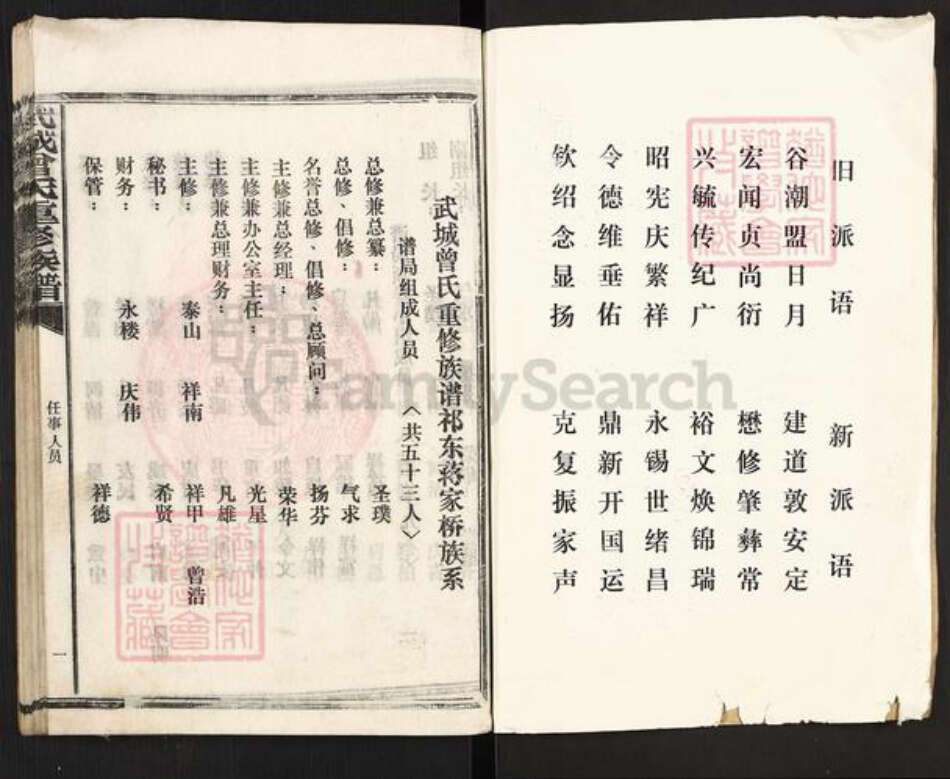 旧派语
谷潮盟日月
宏闻贞尚衍
兴毓传纪广
昭宪庆繁祥
令德维垂佑
钦绍念显扬
新派语
建道敦安定
懋修肇彝常
裕文焕锦瑞
永锡世绪昌
鼎新开国运
克复振家声
武城曾氏重修族谱祁东蒋家桥族系
谱局组成人员〈共五十三人〉
总修兼总纂：圣璞
总修、倡修：气求
名誉总修、倡修、总顾问：扬芬
主修兼总经理：荣华
主修兼办公室主任：光星
主修兼总理财务：凡雄
主修：泰山 祥南 祥甲 曾浩
秘书：希贤
财务：永楼 庆伟
保管：祥德
武城曾氏重修族谱
任事人员
一
FamilySearch